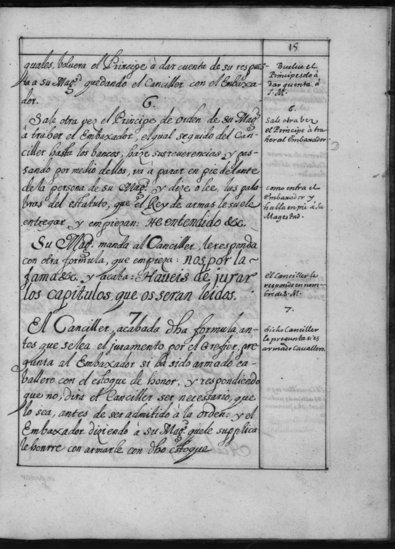 18
quales, boluera el Principe à dar cuenta de su respues
ta a su Mag.d quedando el Canciller con el Embaxa-
dor.
6.
Sale otra vez el Principe de orden de su Mag.d
à traher el Embaxador, el qual seguido del Can-
ciller hasta los bancos, haze sus reuerencias, y pas-
sando por medio dellos, va a parar en pie delante
de la persona de su Mag.d y dize, o lee, las pala
bras del estatuto, que el Rey de armas le suele
entregar, y empiezan: He entendido &c.
Su Mag.d manda al Canciller, le responda
con otra formula, que empieza: nos por la
fama &c. y acaba: Haueis de jurar
los capitulos, que os seran leidos.
7.
El Canciller, acabada dha formula, an-
tes que se lea el juramento por el Grefier, pre
gunta al Embaxador si ha sido armado ca-
ballero con el estoque de honor, y respondiendo
que no, dira el Canciller ser necessario, que
lo sea, antes de ser admitido à la orden: y el
Embaxador diziendo à su Mag.d que le supplica
le honrre con armarle con dho estoque
Buelue el
Principe à
dar quenta à
S. M.
6.
Sale otra vez
el Principe à tra
her al Embaxador
como entra el
Embaxador y
habla en pie à su
Magestad.
el Canciller le
responde en nom-
bre de S. M.
7.
dicho Canciller
le pregunta si es
armado Cauallero.